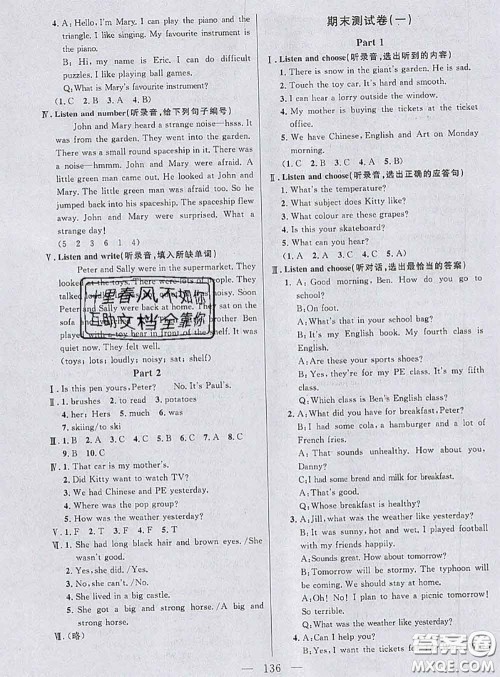 4. A: Hello, I'm Mary. I can play the piano and the
triangle. I like singing. My favourite instrument is
the piano.
B: Hi, my name is Eric. I can do puzzles. I
like playing ball games.
Q: What is Mary's favourite instrument?
(1. C 2. B 3. A 4. C)
Ⅳ. Listen and number(听录音,给下列句子编号)
John and Mary heard a strange noise—hsss. It
was from the garden. They went into the garden.
There was a small round spaceship in it. There was
a noise—hmmm. John and Mary were afraid. A
little green man came out. He looked at John and
Mary. The little green man was afraid too. So he
jumped back into his spaceship. The spaceship flew
away. John and Mary were surprised. What a
strange day!
(5 2 3 6 1 4)
Ⅴ. Listen and write(听录音,填入所缺单词)
Peter and Sally were in the supermarket. They
looked at the toys. There were lots of toys.
十里春风不如你
互助文档全靠你
Sally were back at home.
with a toy bear in front of the shelf. It
was noisy. They felt well.
(toys; lots; loudly; noisy; sat; shelf)
Part 2
Ⅰ. Is this pen yours, Peter? No. It's Paul's.
Ⅱ. 1. brushes 2. to read 3. potatoes
4. her; Hers 5. much 6. was
7. skiing/to ski
Ⅲ. 1. B 2. A 3. C 4. B 5. C 6. A 7. C
Ⅳ. 1. That car is my mother's.
2. Did Kitty want to watch TV?
3. We had Chinese and PE yesterday.
4. Where was the pop group?
5. How was the weather yesterday?
Ⅴ. 1. F 2. T 3. F 4. F 5. T
Ⅵ. 1. She had long black hair and brown eyes. /She
wasn't good.
2. Yes, she did.
3. No, she can't. /No.
4. She lived in a big castle.
5. She got a big and strong horse. /A big and
strong horse.
Ⅶ. (略)
期末测试卷(一)
Part 1
Ⅰ. Listen and choose(听录音,选出听到的内容)
1. There is snow in the giant's garden. He is sad.
2. Touch the toy car. It's hard and smooth.
3. I can hear a lorry outside the window.
4. My mother is buying the tickets at the ticket
office.
5. We have Chinese, English and Art on Monday
morning.
(1. C 2. A 3. B 4. B 5. A)
Ⅱ. Listen and choose(听录音,选出正确的应答句)
1. What's the temperature?
2. What subject does Kitty like?
3. What colour are these grapes?
4. Is this your skateboard?
5. What can you hear?
(1. C 2. A 3. C 4. A 5. B)
Ⅲ. Listen and choose(听对话,选出最恰当的答案)
1. A: Good morning, Ben. How do you go to
school?
B: I go to school by bus.
A: What's in your school bag, Ben?
B: It's my English book. My fourth class is
English.
A: And are these your sports shoes?
B: Yes, they're for my PE class. It's my fifth
class.
Q: Which class is Ben's English class?
2. A: What did you have for breakfast, Peter?
B: I had some cola, a hamburger and a lot of
French fries.
A: That sounds unhealthy. How about you,
Danny?
C: I had some bread and milk for breakfast.
A: That's good.
Q: Whose breakfast is healthy?
3. A: Jill, what was the weather like yesterday?
B: It was sunny and windy. I played football
with my friends happily.
A: Sounds great! How about tomorrow?
B: Terrible tomorrow! The typhoon will come
and it will be cloudy and rainy.
A: Oh! Then I have to have a picnic tomorrow!
B: I'm so sorry!
Q: What was the weather like yesterday?
4. A: Can I help you?
136